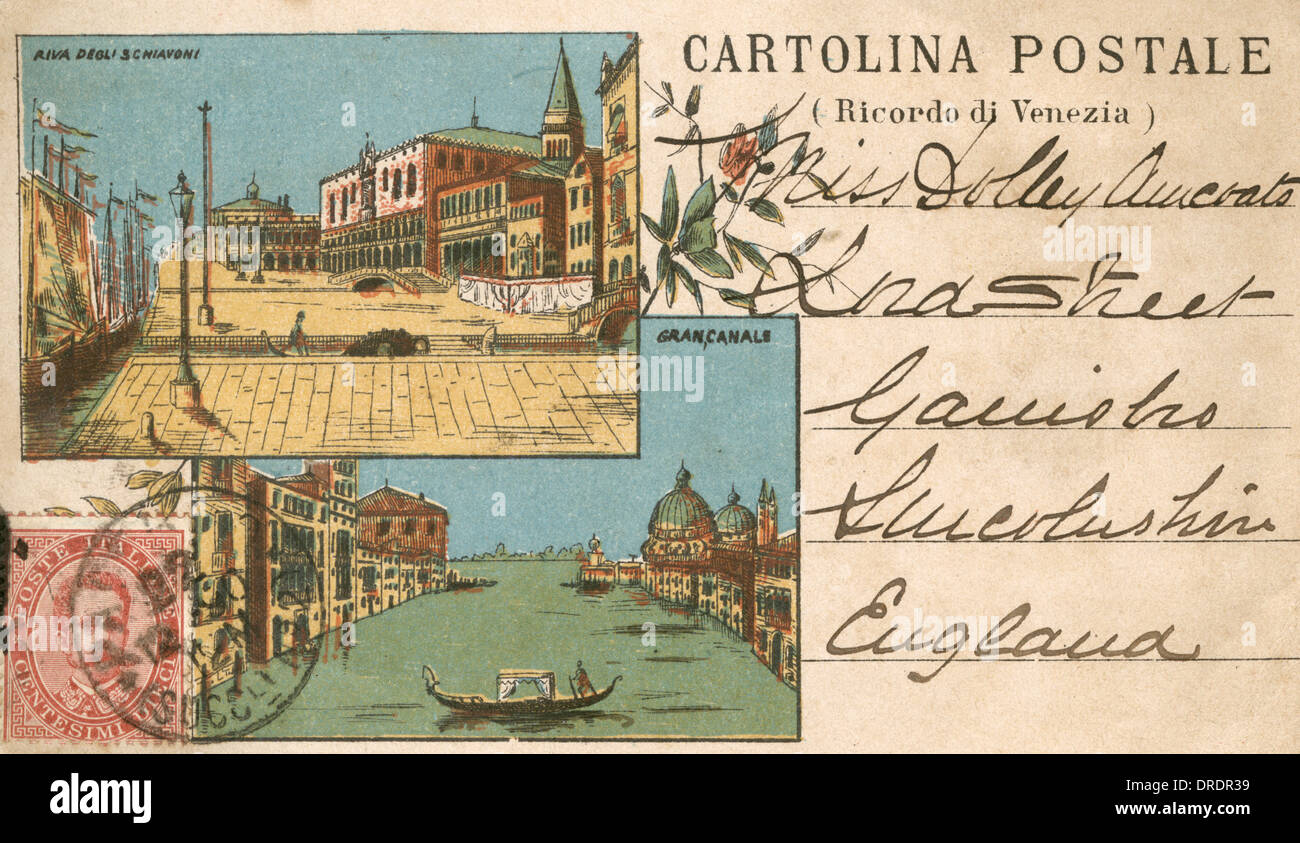 RIVA DEGLI SCHIAVONI
CARTOLINA POSTALE
(Ricordo di Venezia)
Miss Dolley Amcoats
Lord Street
GRAN,CANALE
Lincolnshire
England
POSTE ITALIANE
CENTESIMI DIECI
alamy
Image ID: DRDR39
www.alamy.com